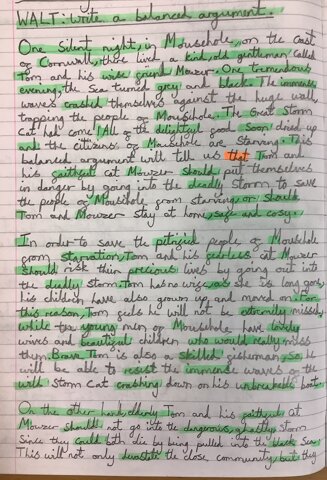 WALT: write a balanced argument.
One silent night, in Mousehole, on the Coast
of Cornwall, there lived a kind, old gentleman called
Tom and his wise friend Mowzer. One tremendous
evening, the Sea turned grey and black. The immense
waves crashed themselves against the huge wall,
trapping the people of Mousehole. The Great Storm
Cat had come! All of the delightful food Soon dried up
and the citizens of Mousehole are Starving. This
balanced argument will tell us that Tom and
his faithful cat Mowzer should put themselves
in danger by going into the deadly storm to save
the people of Mousehole from starving or should
Tom and Mowzer Stay at home, safe and cosy.
In order to save the pitiful people of Mousehole
from starvation, Tom and his fearless cat Mowzer
should risk their precious lives by going out into
the deadly storm. Tom has no wife, as she is long gone,
his children have also grown up and moved on. For
this reason, Tom feels he will not be extremily missed,
while the young men of Mousehole have lovely
wives and beautiful children who would really miss
them. Brave Tom is also a skilled fisherman, so he
will be able to resist the immense waves of the
wild Storm Cat crashing down on his unbreakable boat.
On the other hand, elderly Tom and his faithful cat
Mowzer should not go into the dangerous, ghastly storm
Since they could both die by being pulled into the black Sea.
This will not only devastate the close community, but they